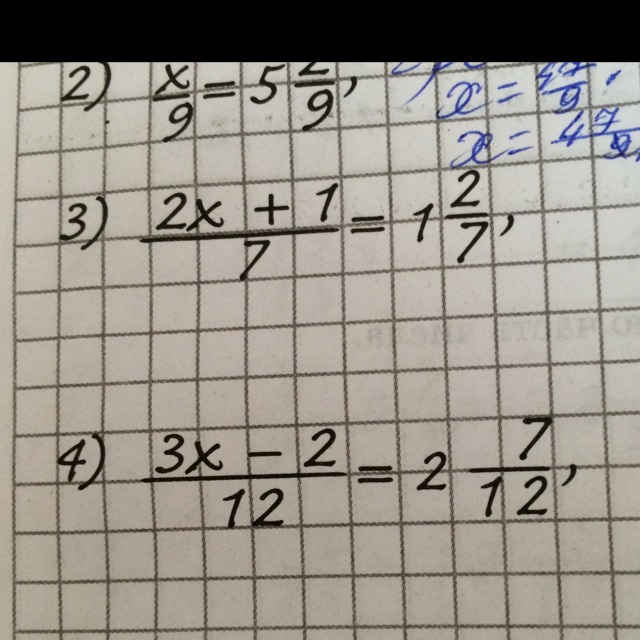 2) x/9 = 5 2/9,
x =
x = 47
3) (2x + 1)/7 = 1 2/7,
4) (3x − 2)/12 = 2 7/12,